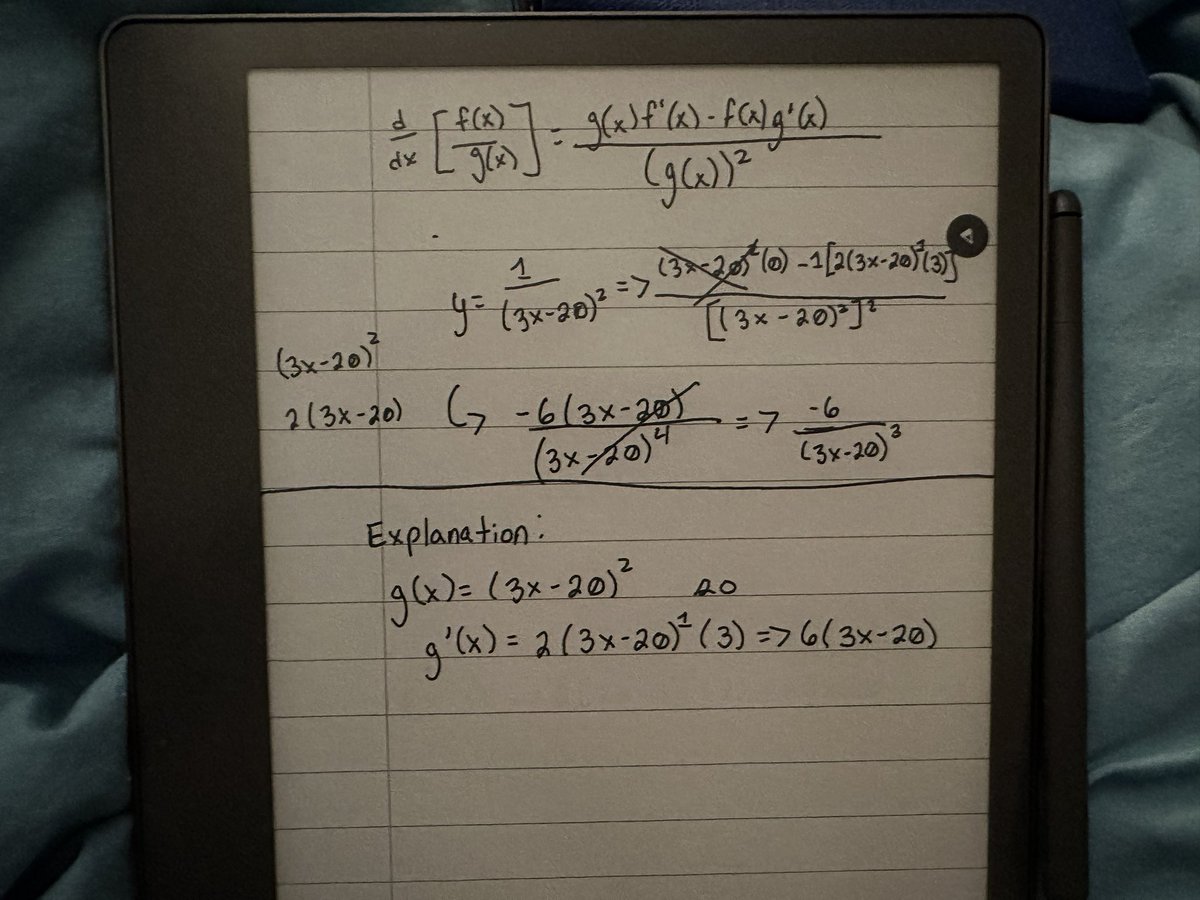 d/dx [f(x)/g(x)] = g(x)f'(x) - f(x)g'(x) / (g(x))²
y = 1/(3x-20)² => (3x-20)²(0) - 1[2(3x-20)¹(3)] / [(3x-20)²]²
(3x-20)²
2(3x-20) ↳ -6(3x-20)/(3x-20)⁴ => -6/(3x-20)³
Explanation:
g(x) = (3x-20)² so
g'(x) = 2(3x-20)¹(3) => 6(3x-20)